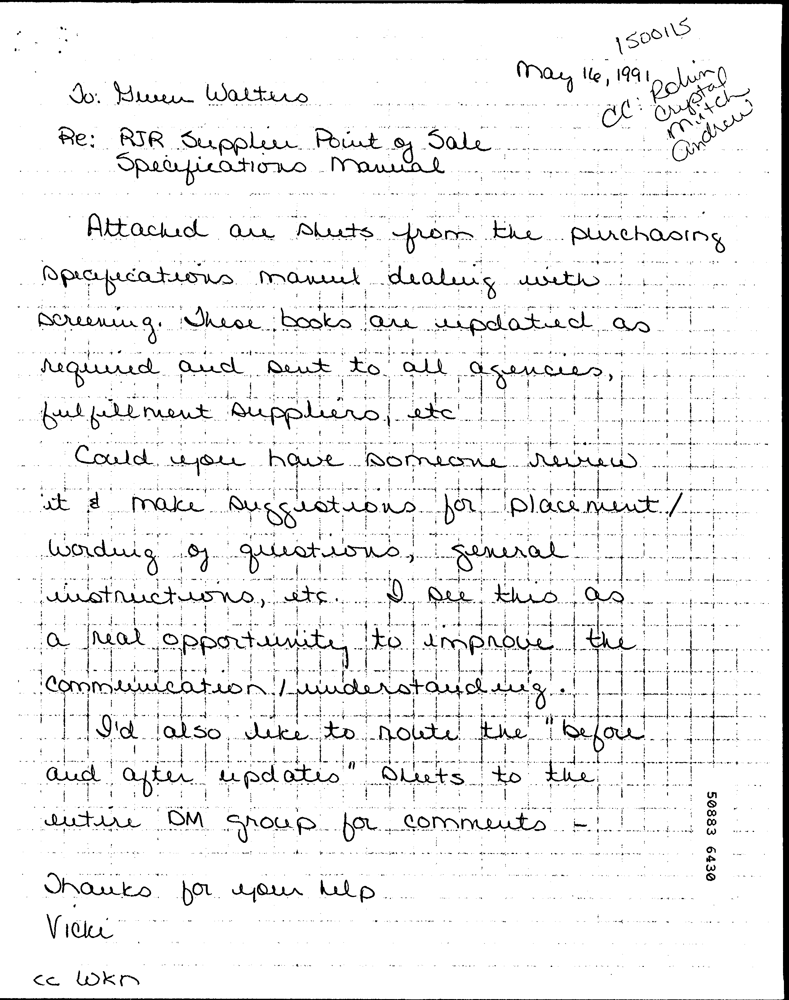 1500115
May 16, 1991
CC: Robin
Crystal
Mitch
Andrew
To: Gwen Walters
Re: RJR Supplier Point of Sale
Specifications Manual
Attached are sheets from the purchasing
specifications manual dealing with
screening. These books are updated as
required and sent to all agencies,
fulfillment suppliers, etc
Could you have someone review
it & make suggestions for placement/
wording of questions, general
instructions, etc. I see this as
a real opportunity to improve the
communication/understanding.
I'd also like to route the "before
and after updates" sheets to the
entire DM group for comments -
Thanks for your help
Vicki
cc WKN
50883 6430